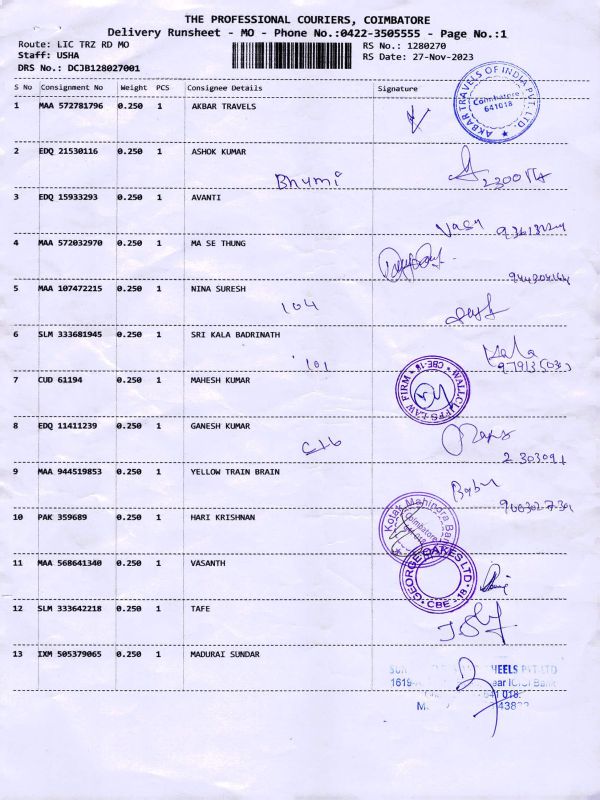 THE PROFESSIONAL COURIERS, COIMBATORE
Delivery Runsheet - MO - Phone No.:0422-3505555 - Page No.:1
Route: LIC TRZ RD MO
RS No.: 1280270
Staff: USHA
RS Date: 27-Nov-2023
DRS No.: DCJB128027001
S No Consignment No Weight PCS Consignee Details Signature
1 MAA 572781796 0.250 1 AKBAR TRAVELS
AKBAR TRAVELS OF INDIA PVT. LTD.
Coimbatore
641018
2 EDQ 21530116 0.250 1 ASHOK KUMAR
Bhumi
3 EDQ 15933293 0.250 1 AVANTI
4 MAA 572032970 0.250 1 MA SE THUNG
5 MAA 107472215 0.250 1 NINA SURESH
104
6 SLM 333681945 0.250 1 SRI KALA BADRINATH
101
Kala
7 CUD 61194 0.250 1 MAHESH KUMAR
WALLCLIFFS LAW FIRM CBE-18
8 EDQ 11411239 0.250 1 GANESH KUMAR
9 MAA 944519853 0.250 1 YELLOW TRAIN BRAIN
Babu
10 PAK 359689 0.250 1 HARI KRISHNAN
Kotak Mahindra Bank
Coimbatore
11 MAA 568641340 0.250 1 VASANTH
GEORGE OAKES LTD
CBE - 18
12 SLM 333642218 0.250 1 TAFE
13 IXM 505379065 0.250 1 MADURAI SUNDAR
HEELS PVT LTD
ICICI Bank
641 018.